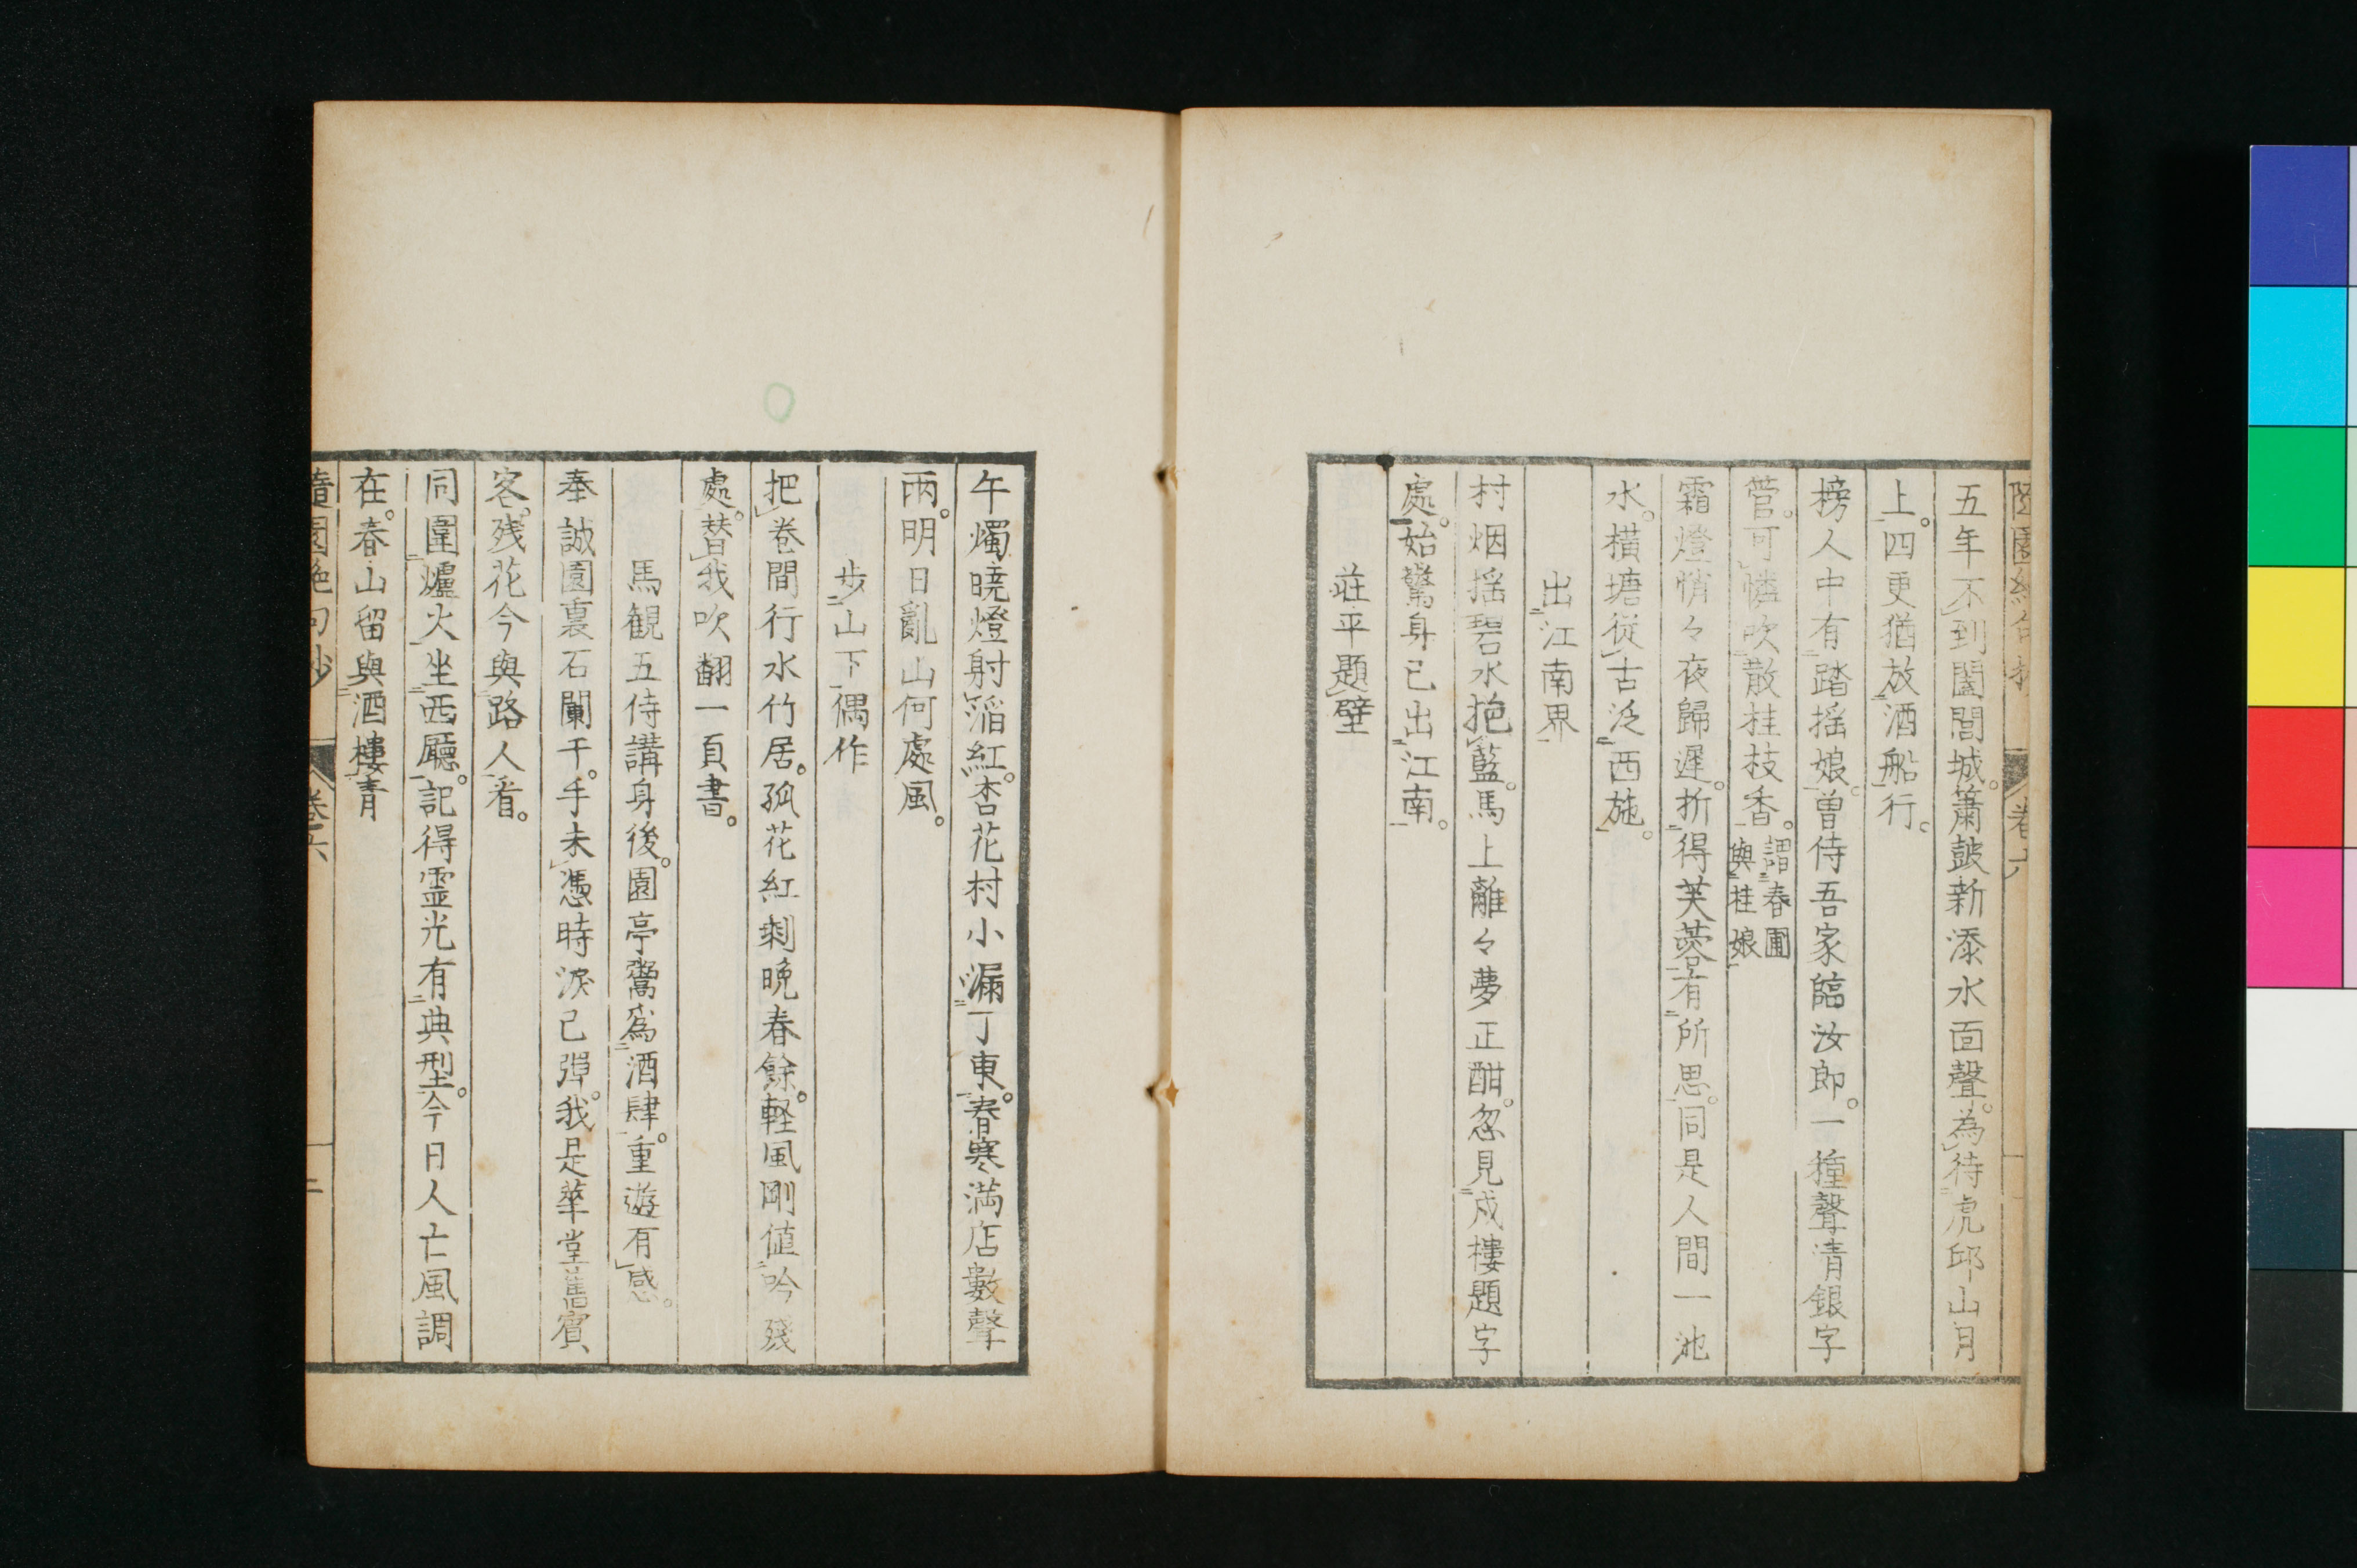 五年不到闔閭城。簫鼓新添水面聲。為待虎邱山月
上。四更猶放酒船行。
榜人中有踏揺娘。曽侍吾家臨汝郎。一種聲清銀字
菅。可憐吹散桂枝香。謂春圃
與桂娘
霜燈悄々夜歸遲。折得芙蓉有所思。同是人間一池
水。横塘從古泛西施。
出江南界
村烟揺碧水挹藍。馬上離々夢正酣。忽見戍樓題字
處。始驚身已出江南。
莊平題壁
午燭曉燈射㴞紅。杏花村小漏丁東。春寒満店數聲
雨。明日亂山何處風。
步山下偶作
把卷間行水竹居。孤花紅剌晩春餘。軽風剛値吟殘
處。替我吹翻一頁書。
馬観五侍講身後。園亭鬻爲酒肆。重遊有感。
奉誠園裏石闌干。手未憑時淚已彈。我是華堂舊賓
客。残花今與路人看。
同圍爐火坐西廳。記得霊光有典型。今日人亡風調
在。春山留與酒樓青
隨園絶句抄 卷六 二